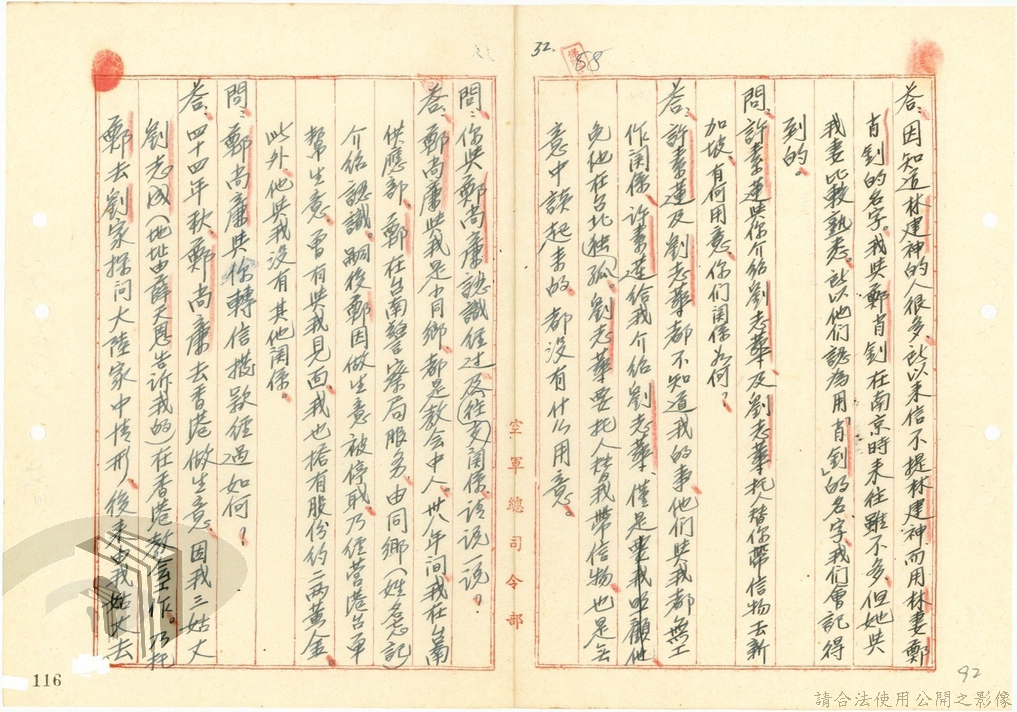 答：因知道林建神的人很多，所以來信不提林建神而用林妻鄭
肖釗的名字。我與鄭肖釗在南京時來往雖不多，但她與
我妻比較熟悉，所以他們認為用「肖釗」的名字，我們會記得
到的。
問：許素蓮與你介紹劉志華及劉志華托人替你帶信物去新
加坡，有何用意，你們関係为何？
答：許素蓮及劉志華都不知道我的事，他們與我都無工
作関係，許素蓮給我介紹劉志華，僅是我照顧他
免他在台北独孤。劉志華要托人替我帶信物也是無
意中談起来的，都沒有什么用意。
問：你與鄭尚廉認識经过及往友関係，請說一說？
答：鄭尚廉與我是小同鄉，都是教会中人。卅八年间我在台南
供應部，鄭在台南警察局服务，由同鄉（姓名忘記）
介紹認識。嗣後鄭因做生意被停职，乃经营港台单
幫生意，曾有與我見面，我也搭有股份約二両黃金，
此外，他與我沒有其他関係。
問：鄭尚廉與你轉信撥款经過如何？
答：四十四年秋，鄭尚廉去香港做生意，因我三姑丈
劉志成（地址由薛天恩告诉我的）在香港教会工作。乃托
鄭去劉家探问大陸家中情形，後来由我姑丈去
空軍總司令部
32.
88
92
116
請合法使用公開之影像